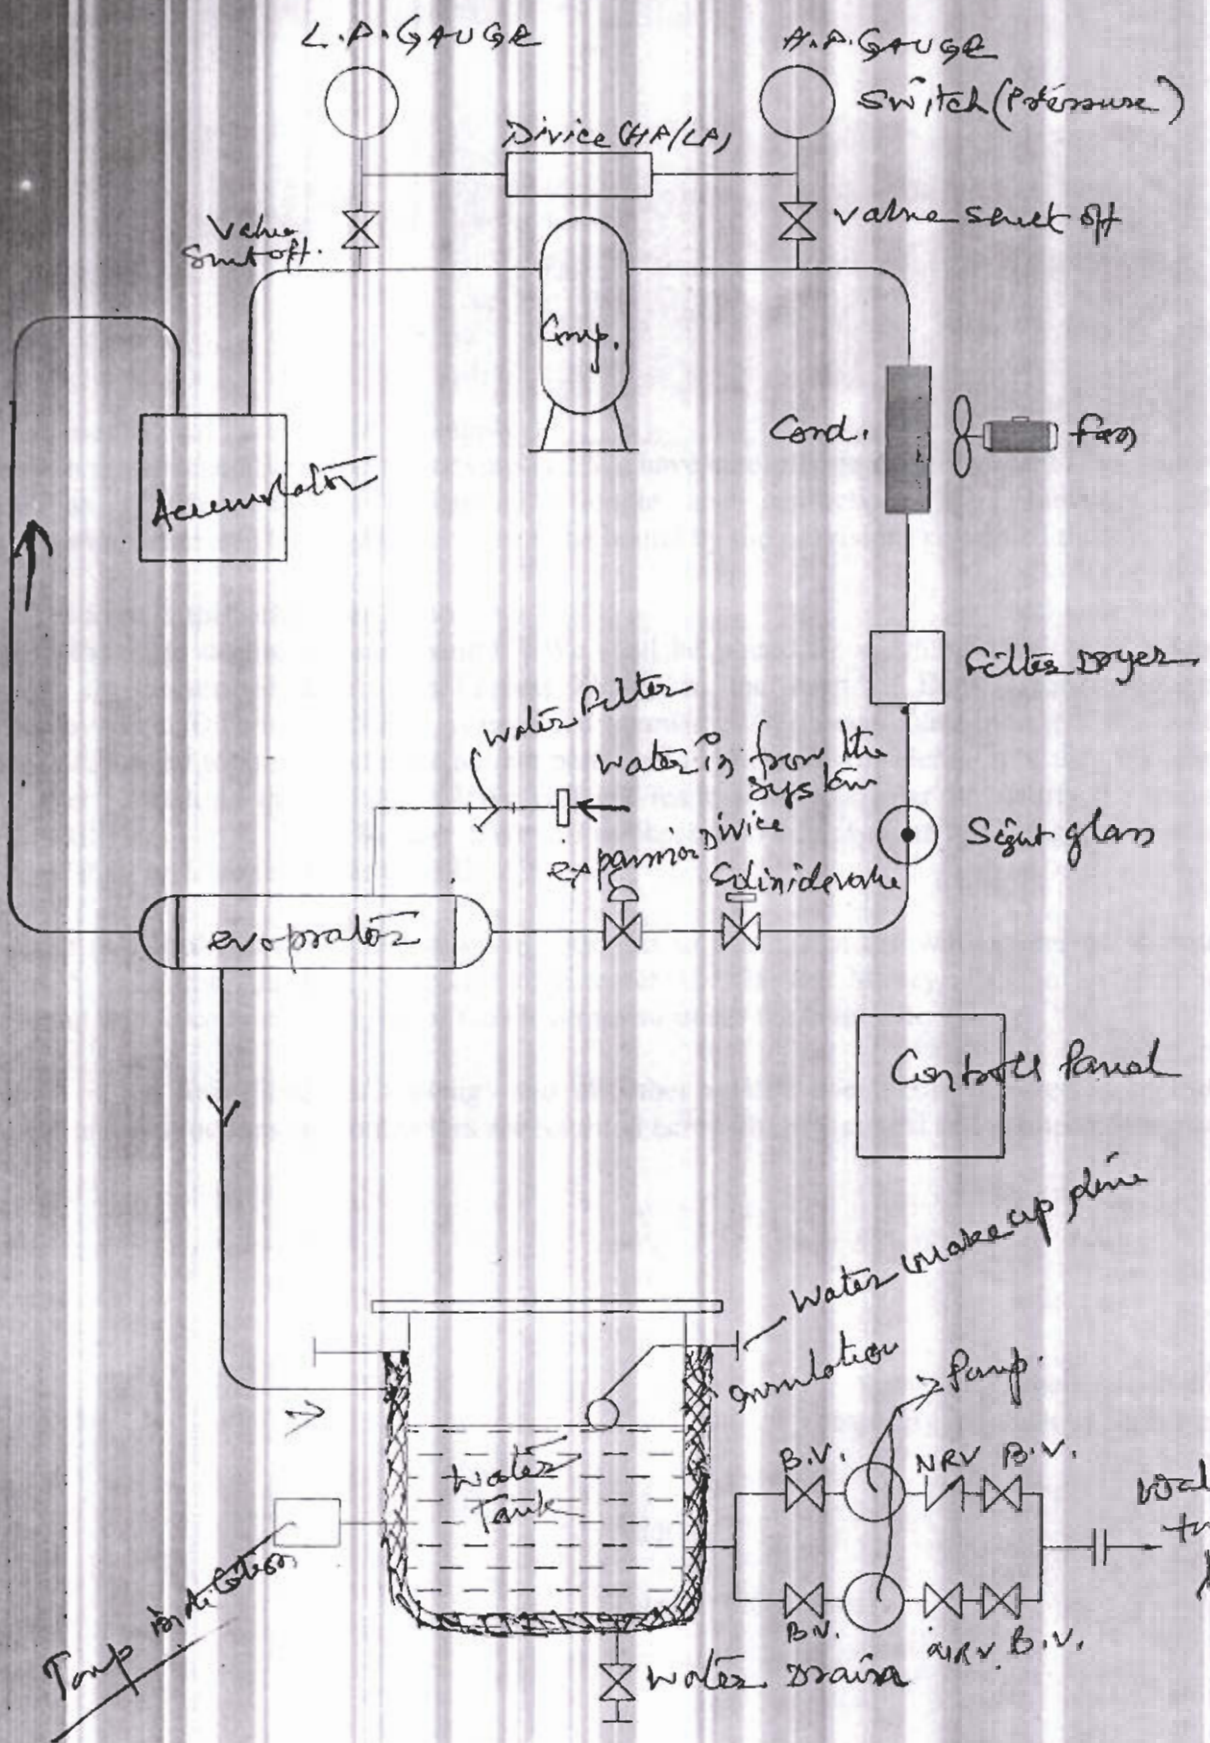 L.P. GAUGE
H.P. GAUGE
Switch (Pressure)
Divice (HP/LP)
Valve
Shut off.
Valve shut off
Comp.
Cond.
Fan
Accumolator
Filter Dryer
Water Filter
Water in from the
system
Sight glass
expansion Divice
Solinidevalve
evoprator
Controll Panal
Water make up line
insulation
Pump.
B.V.
NRV
B.V.
Water
Tank
Temp indication
B.V.
NRV.
B.V.
Water Drain